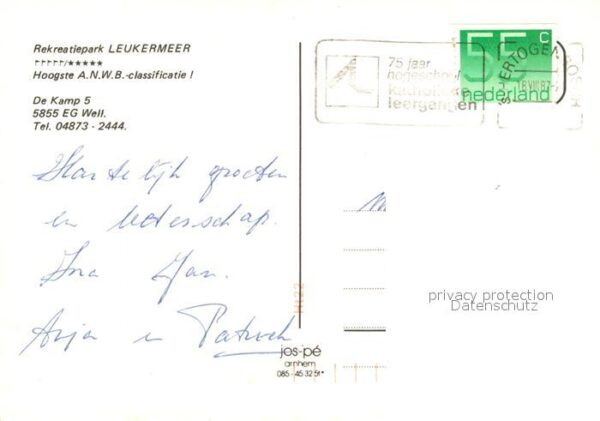 Rekreatiepark LEUKERMEER
Hoogste A.N.W.B.-classificatie !
De Kamp 5
5855 EG Well.
Tel. 04873 - 2444.
Hartelijk groeten
en beterschap.
Ina Jan.
Anja en Patrick
jos-pé
arnhem
085-45 32 51*
75 jaar
hogeschool
katholieke
leergangen
55 c
nederland
's-HERTOGENBOSCH
privacy protection
Datenschutz